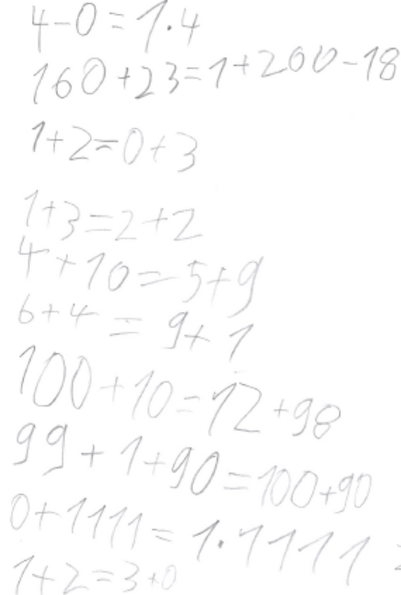 4-0=1·4
160+23=1+200-18
1+2=0+3
1+3=2+2
4+10=5+9
6+4=9+1
100+10=12+98
99+1+90=100+90
0+1111=1·1111=
1+2=3+0